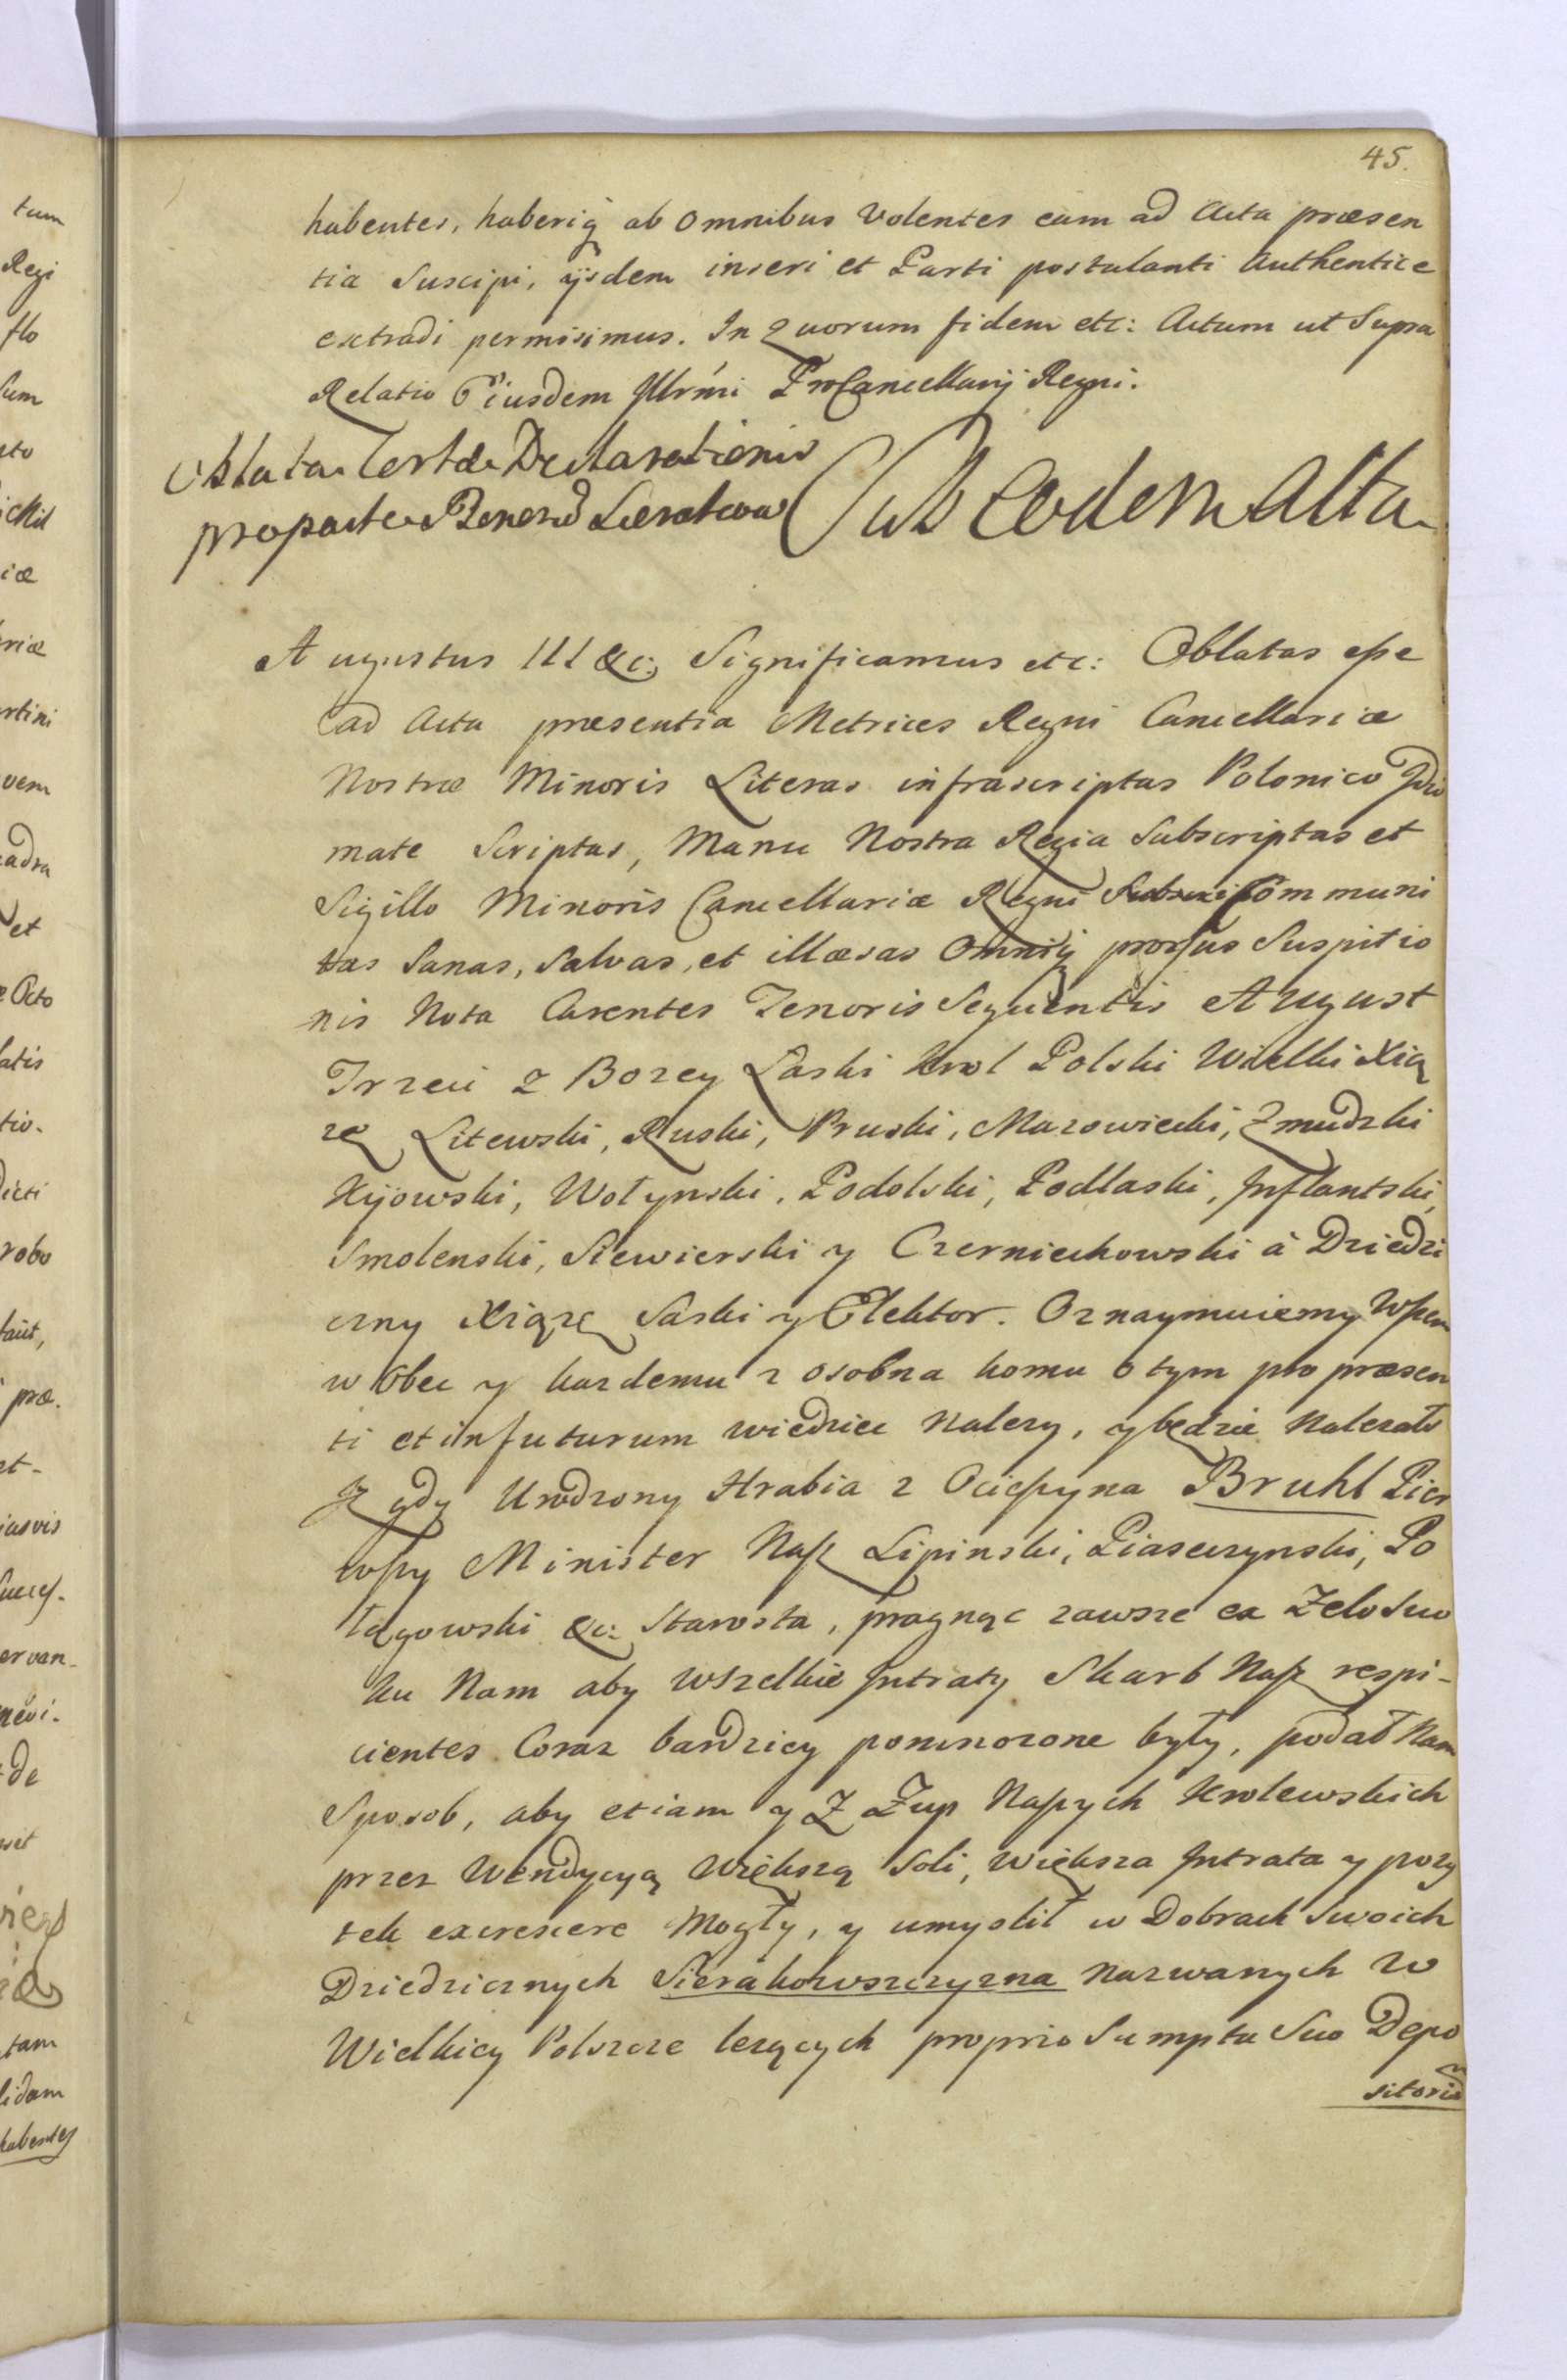 45.
habentes, haberiq ab omnibus volentes eam ad Acta præsen
tia Suscipi, ijsdem inseri et Parti postulanti Authentice
extradi permisimus. In quorum fidem etc: Actum ut Supra
Relatio Eiusdem Illrmi ProCancellarij Regni.
Oblata Certæ Declarationis
pro parte Sub eodem Acta
Augustus III &c: Significamus etc: Oblatas eſse
ad Acta præsentia Metrices Regni Cancellariæ
Nostræ Minoris Literas infrascriptas Polonico Idio
mate Scriptas, Manu Nostra Regia Subscriptas et
Sigillo Minoris Cancellariæ Regni Communi
tas Sanas, Salvas, et illæsas Omniq prorsus Suspitio
nis Nota Carentes Tenoris Sequentis August
Trzeci z Bozey Łaski Krol Polski Wielki Xią
zę Litewski, Ruski, Pruski, Mazowiecki, Zmudzki
Kijowski, Wołynski, Podolski, Podlaski, Inflantski,
Smolenski, Siewierski y Czerniechowski á Dziedzi
czny Xiąze Saski y Elektor. Oznaymuiemy Wſzem
w Obec y kazdemu z osobna komu o tym pro præsen
ti et in futurum wiedziec Nalezy, y będzie Nalezało
Iz gdy Urodzony Hrabia z Ocieſzyna Bruhl Pier
wſzy Minister Naſz Lipinski, Piaseczynski, Bo
łągowski &c: Starosta, pragnąc zawsze ex Zelo Suo
ku Nam aby wszelkie Intraty Skarb Naſz respi-
cientes Coraz bardziey pomnozone były, podał Nam
Sposob, aby etiam y Z Żup Naſzych Krolewskich
przez Wendycyą Większą Soli, większa Intrata y pozy
tek excrescere Mogły, y umyslił w Dobrach Swoich
Dziedzicznych Sierakowszczyzna Nazwanych w
Wielkiey Polszcze lezących proprio Sumptu Suo Depo
sitoria